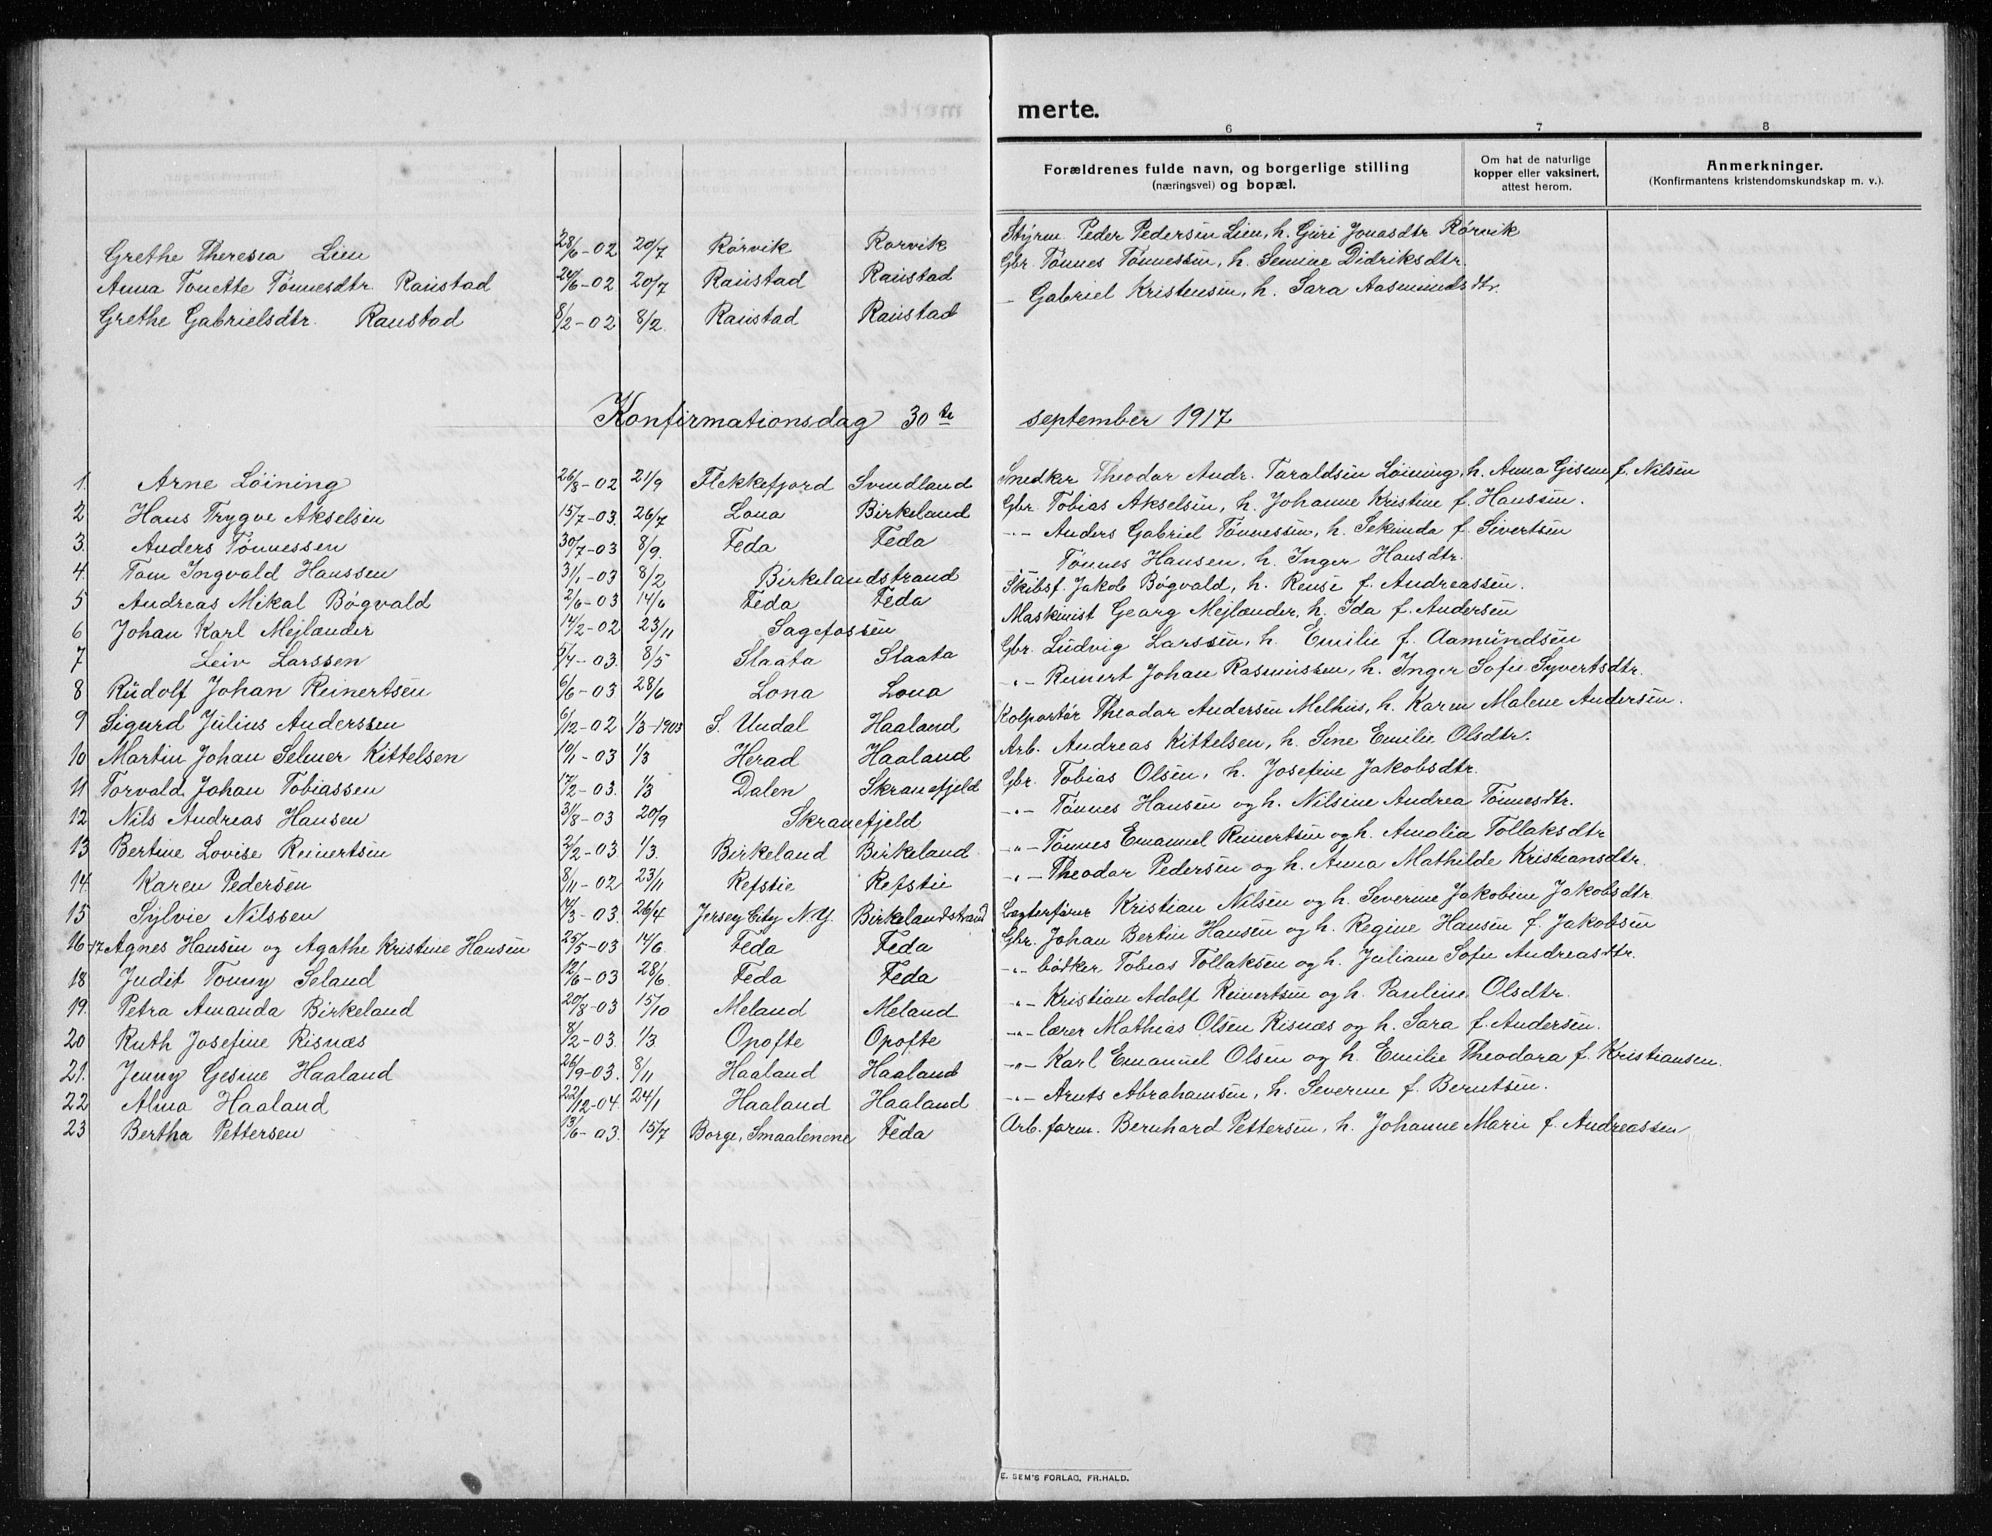 merte.
6 7 8
Forældrenes fulde navn, og borgerlige stilling (næringsvei) og bopæl.
Om hat de naturlige kopper eller vaksinert, attest herom.
Anmerkninger.
(Konfirmantens kristendomskundskap m. v.).
Grethe Theresia Lien 28/6-02 20/7 Rörvik Rörvik Styrm Peder Pedersen Lien, h. Guri Jonasdtr Rørvik
Anna Tonette Tønnesdtr. Raustad 20/7 Raustad Raustad Gbr. Tønnes Tønnessen, h. Didriksdtr.
Grethe Gabrielsdtr. Raustad 8/2-02 8/2 Raustad Raustad - Gabriel Kristensen, h. Sara Aasmundsdtr.
Konfirmationsdag 30te september 1917
1. Arne Löining 26/8-02 21/9 Flekkefjord Svindland Snedker Theodor Andr. Taraldsen Löining, h. Anna f. Nilsen
2 Hans Trygve Akselsen 15/7-03. 26/7 Lona Birkeland Gbr. Tobias Akselsen, h. Johanne Kristine f. Hanssen.
3. Anders Tönnessen 30/7-03 8/9. Feda Feda -"- Anders Gabriel Tönnessen, h. Sekinda f. Sivertsen
4. Tom Ingvald Hanssen 31/1-03 8/2 Birkelandstrand Tönnes Hansen, h. Inger Hansdtr.
5 Andreas Mikal Bøgvald 2/6-03 14/6 Feda Feda Skibsf. Jakob Bøgvald, h. f. Andreassen.
6 Johan Karl Mejlænder 14/2-02 23/11 Sagefossen Maskinist Georg Mejlænder, h. Ida f. Andersen
7 Leiv Larssen 8/5 Slaata Slaata Gbr. Ludvig Larssen, h. Emilie f. Aamundsen
8 Rudolf Johan Reinertsen 6/6-03 28/6 Lona Lona -"- Reinert Johan Rasmussen, h. Inger Sofie Syvertsdtr.
9 Sigurd Julius Anderssen 6/12-02 1/3-1903 S. Undal Haaland Kolportør Theodor Andersen Melhus, h. Karen Malene Andersen.
10 Martin Johan Selmer Kittelsen 10/1-03 1/3 Herad Haaland Arb. Andreas Kittelsen, h. Sine Emilie Olsdtr.
11 Torvald Johan Tobiassen 17/2-03. 1/3 Dalen Skranefjeld Gbr. Tobias Olsen, h. Josefine Jakobsdtr.
12 Nils Andreas Hansen 31/8-03 20/9 Skranefjeld -"- Tønnes Hansen og h. Nilsine Andrea Tønnesdtr.
13 Bertine Lovise Reinertsen 2/2-03 1/3. Birkeland Birkeland. -"- Tönnes Emanuel Reinertsen og h. Amalia Tollaksdtr
14. Karen Pedersen 8/11-02 23/11 Refstie Refstie -"- Theodor Pedersen og h. Anna Mathilde Kristiansdtr.
15 Sylvie Nilssen 14/3-03. 26/4 Jersey City N.Y. Birkelandstrand Lægterfører Kristian Nilsen og h. Severine Jakobine Jakobsdtr.
16-17 Agnes Hansen og Agathe Kristine Hansen 25/5-03 14/6 Feda Feda Gbr. Johan Bertin Hansen og h. Regine Hansen f. Jakobsen
18 Judit Tonny Seland 12/6-03 28/6. Feda Feda -"- bödker Tobias Tollaksen og h. Juliane Sofie Andreasdtr.
19. Petra Amanda Birkeland 20/8-03 15/10 Meland Meland -"- Kristian Adolf Reinertsen og h. Pauline Olsdtr.
20 Ruth Josefine Risnæs 8/2-03. 1/3 Opofte Opofte -"- lærer Mathias Olsen Risnæs og h. Sara f. Andersen.
21. Jenny Gesine Haaland 26/9-03. 8/11 Haaland Haaland -"- Karl Emanuel Olsen og h. Emilie Theodora f. Kristiansen.
22 Alma Haaland 22/12-04. 24/1 Haaland Haaland -"- Arnts Abrahamsen, h. Severine f. Berntsen.
23 Bertha Pettersen 13/6-03. 15/7 Borge, Smaalenene Feda Arb. form. Bernhard Pettersen, h. Johanne Marie f. Andreassen
E. SEM'S FORLAG, FR.HALD.